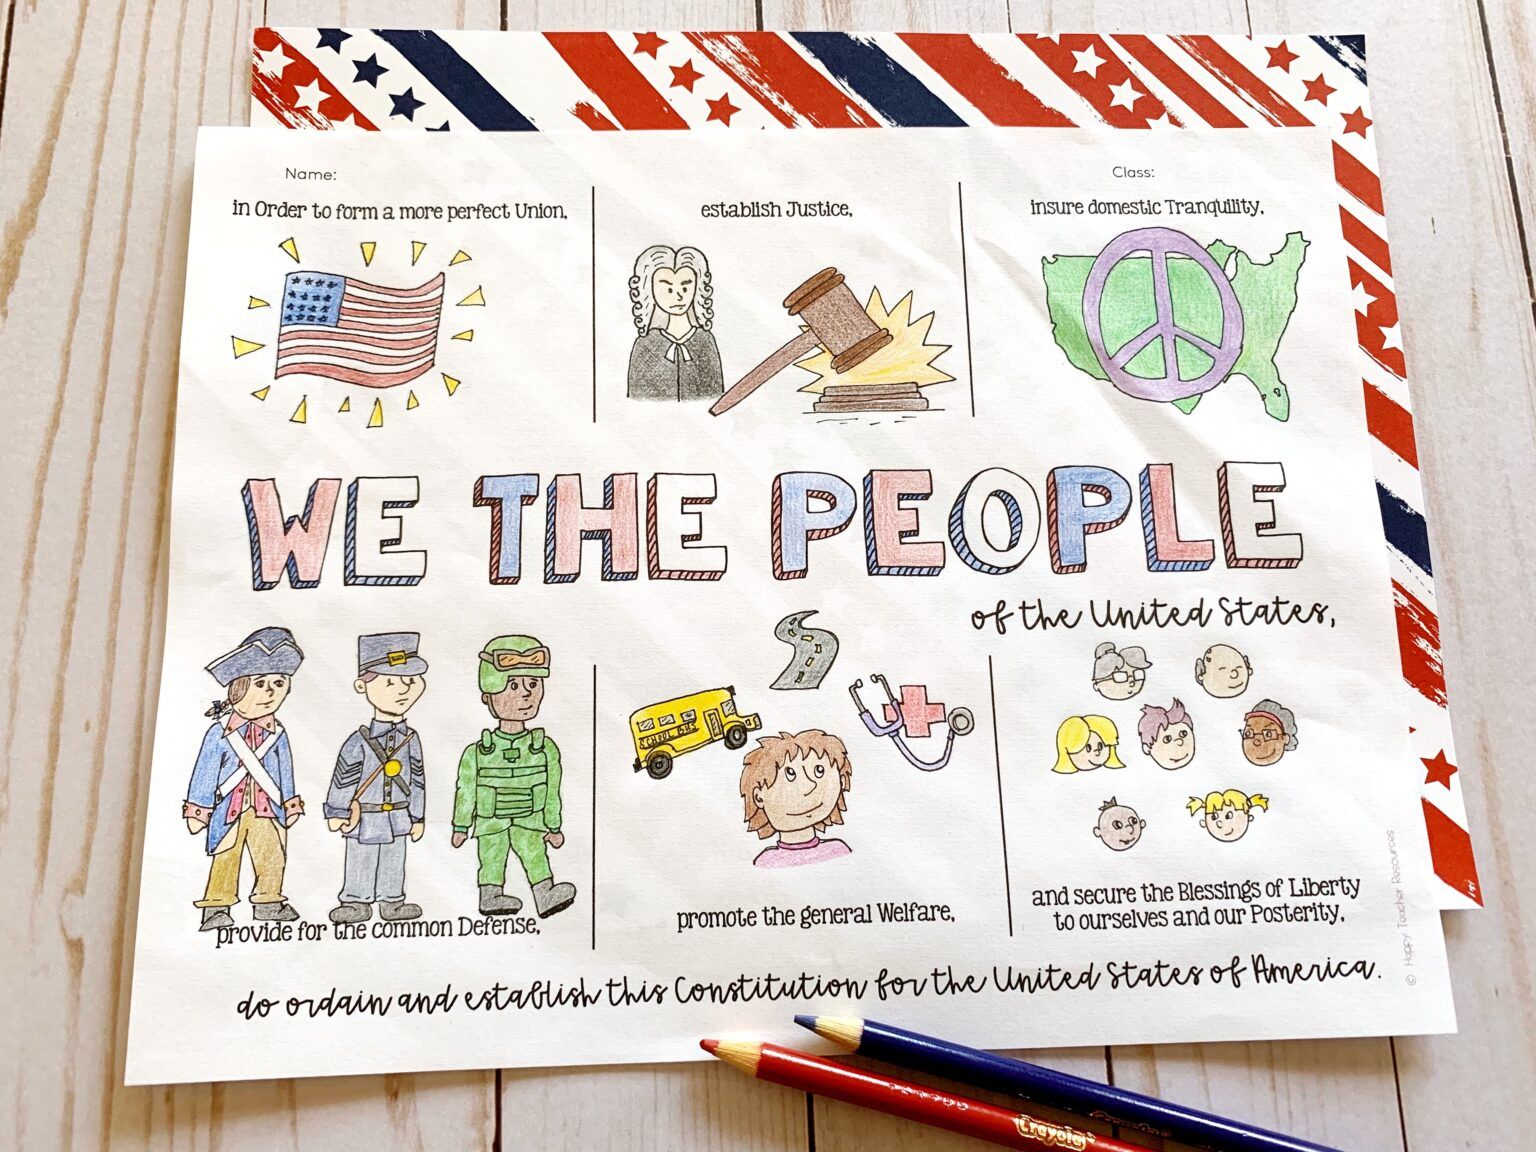 Name:
Class:
in Order to form a more perfect Union,
establish Justice,
insure domestic Tranquility,
WE THE PEOPLE
of the United States,
SCHOOL BUS
provide for the common Defense,
promote the general Welfare,
and secure the Blessings of Liberty
to ourselves and our Posterity,
do ordain and establish this Constitution for the United States of America.
© Happy Teacher Resources
Crayola